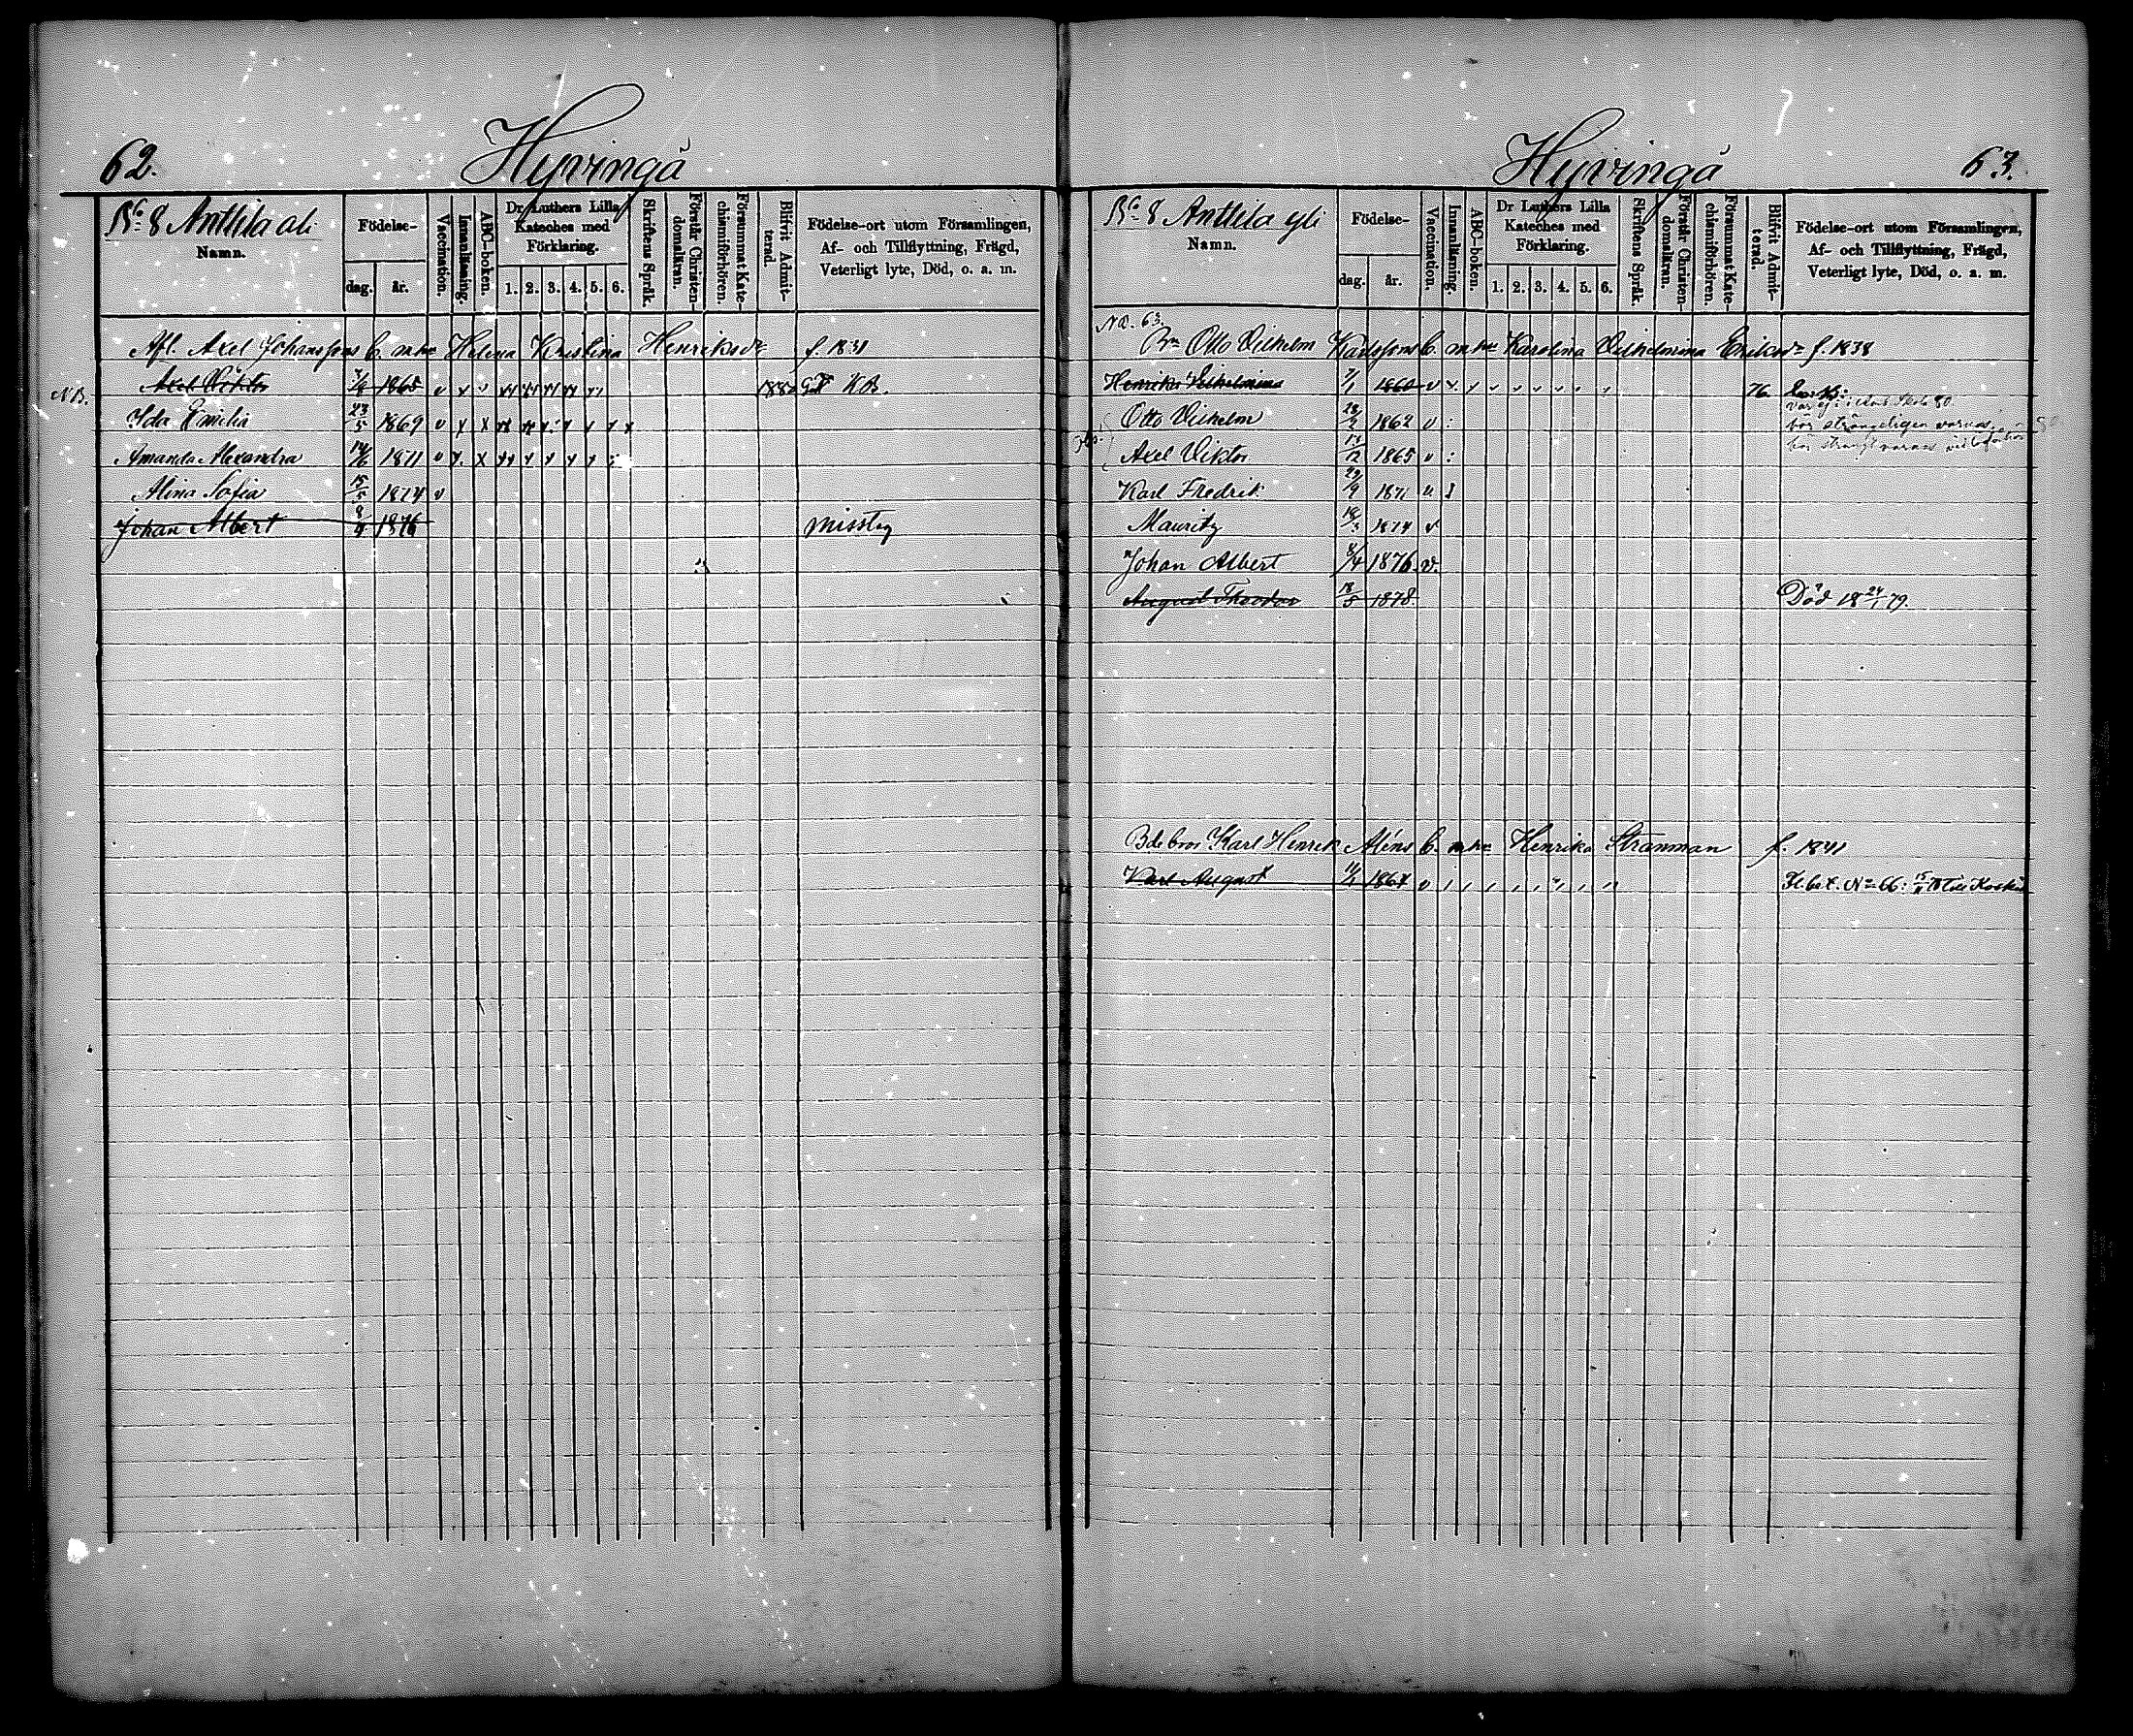 62.
Hyvingä
No 8 Anttila ali
Namn.
Födelse-
dag.
år.
Vaccination.
Innanläsning.
ABC-boken.
Dr Luthers Lilla
Kateches med
Förklaring.
1. 2. 3. 4. 5. 6.
Skriftens Språk.
Förstår Christen-
domsläran.
Försummat Kate-
chismiförhören.
Blifvit Admit-
terad.
Födelse-ort utom Församlingen,
Af- och Tillflyttning, Frägd,
Veterligt lyte, Död, o. a. m.
Afl. Axel Johanssons b. m. hu Helena Kristina Henriksdr f. 1831
N.B. Axel Viktor 1865 v
Ida Emilia 23/5 1869 v x x
Amanda Alexandra 1871 v x x
Alina Sofia 15/5 1874 v
Johan Albert 8/4 1876 misstag
Hyvingä
63.
No 8 Anttila yli
Namn.
Födelse-
dag.
år.
Vaccination.
Innanläsning.
ABC-boken.
Dr Luthers Lilla
Kateches med
Förklaring.
1. 2. 3. 4. 5. 6.
Skriftens Språk.
Förstår Christen-
domsläran.
Försummat Kate-
chismiförhören.
Blifvit Admit-
terad.
Födelse-ort utom Församlingen,
Af- och Tillflyttning, Frägd,
Veterligt lyte, Död, o. a. m.
No. 63.
Bn Otto Vilhelm Karlssons b. m. hu Karolina Vilhelmina Eriksdr f. 1838
Henrika Vilhelmina 7/1 1860 v 76.
Otto Vilhelm 28/2 1862 v : bör strängeligen varnas
Axel Viktor 13/12 1865 v :
Karl Fredrik 29/9 1871 v
Mauritz 18/3 1874 v
Johan Albert 8/4 1876. v.
August Theodor 18/5 1878. Död 18 24/1 79.
Bde bror Karl Henrik Aléns b. m. hu Henrika Stramman f. 1841
Karl August 11/4 1864 v Fl. bet. No 66: